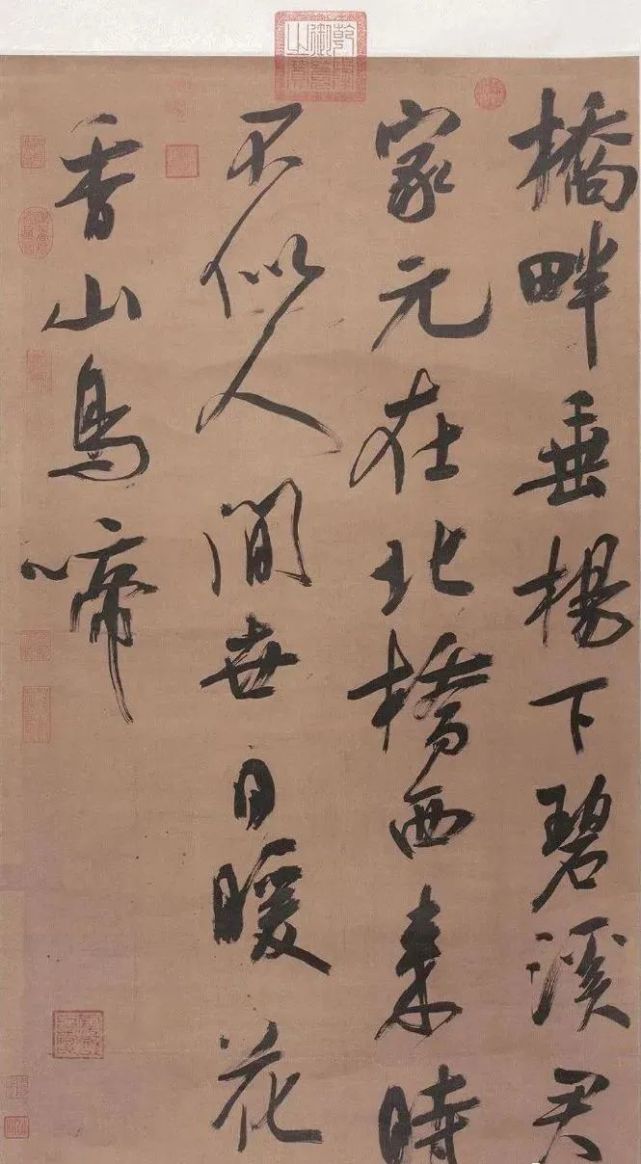 乾隆御覽之寶
橋畔垂楊下碧溪君
家元在北橋西來時
不似人間世日暖花
香山鳥啼